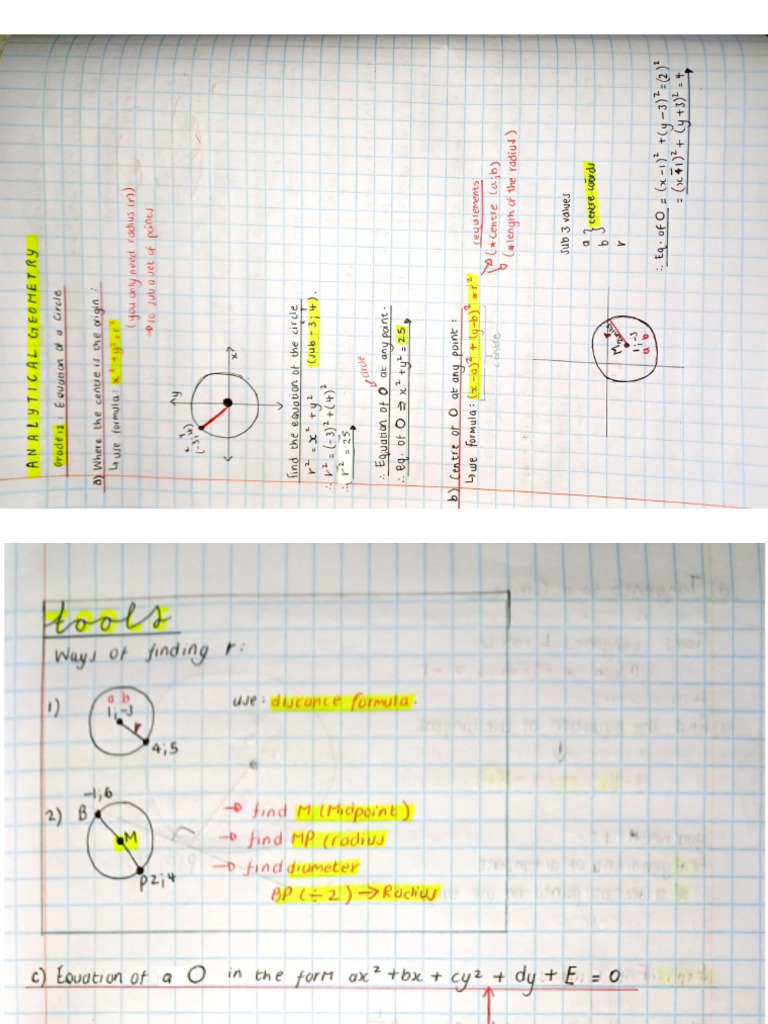 ANALYTICAL GEOMETRY
Grade 12: Equation of a Circle
a) Where the centre is the origin:
↳ use formula: x² + y² = r²
(you only need radius (r))
→ to sub a set of points
y
x
(-3;4)
find the equation of the circle
r² = x² + y² (sub -3; 4).
∴ r² = (-3)² + (4)²
∴ r² = 25
circle
∴ Equation of O at any point.
∴ eq. of O ⇒ x² + y² = 25
b) Centre of O at any point:
↳ use formula: (x-a)² + (y-b)² = r²
centre
requirements:
(* centre (a;b)
(* length of the radius)
M
1;-3
a b
sub 3 values
a } centre coords
b
r
∴ Eq. of O = (x-1)² + (y-3)² = (2)²
= (x-1)² + (y+3)² = 4
tools
Ways of finding r:
1) a b use: distance formula.
1;-3
r
4;5
-1;6
2) B → find M (Midpoint)
M → find MP (radius
→ find diameter
P 2;4
BP (÷2) → Radius
c) Equation of a O in the form ax² + bx + cy² + dy + E = 0